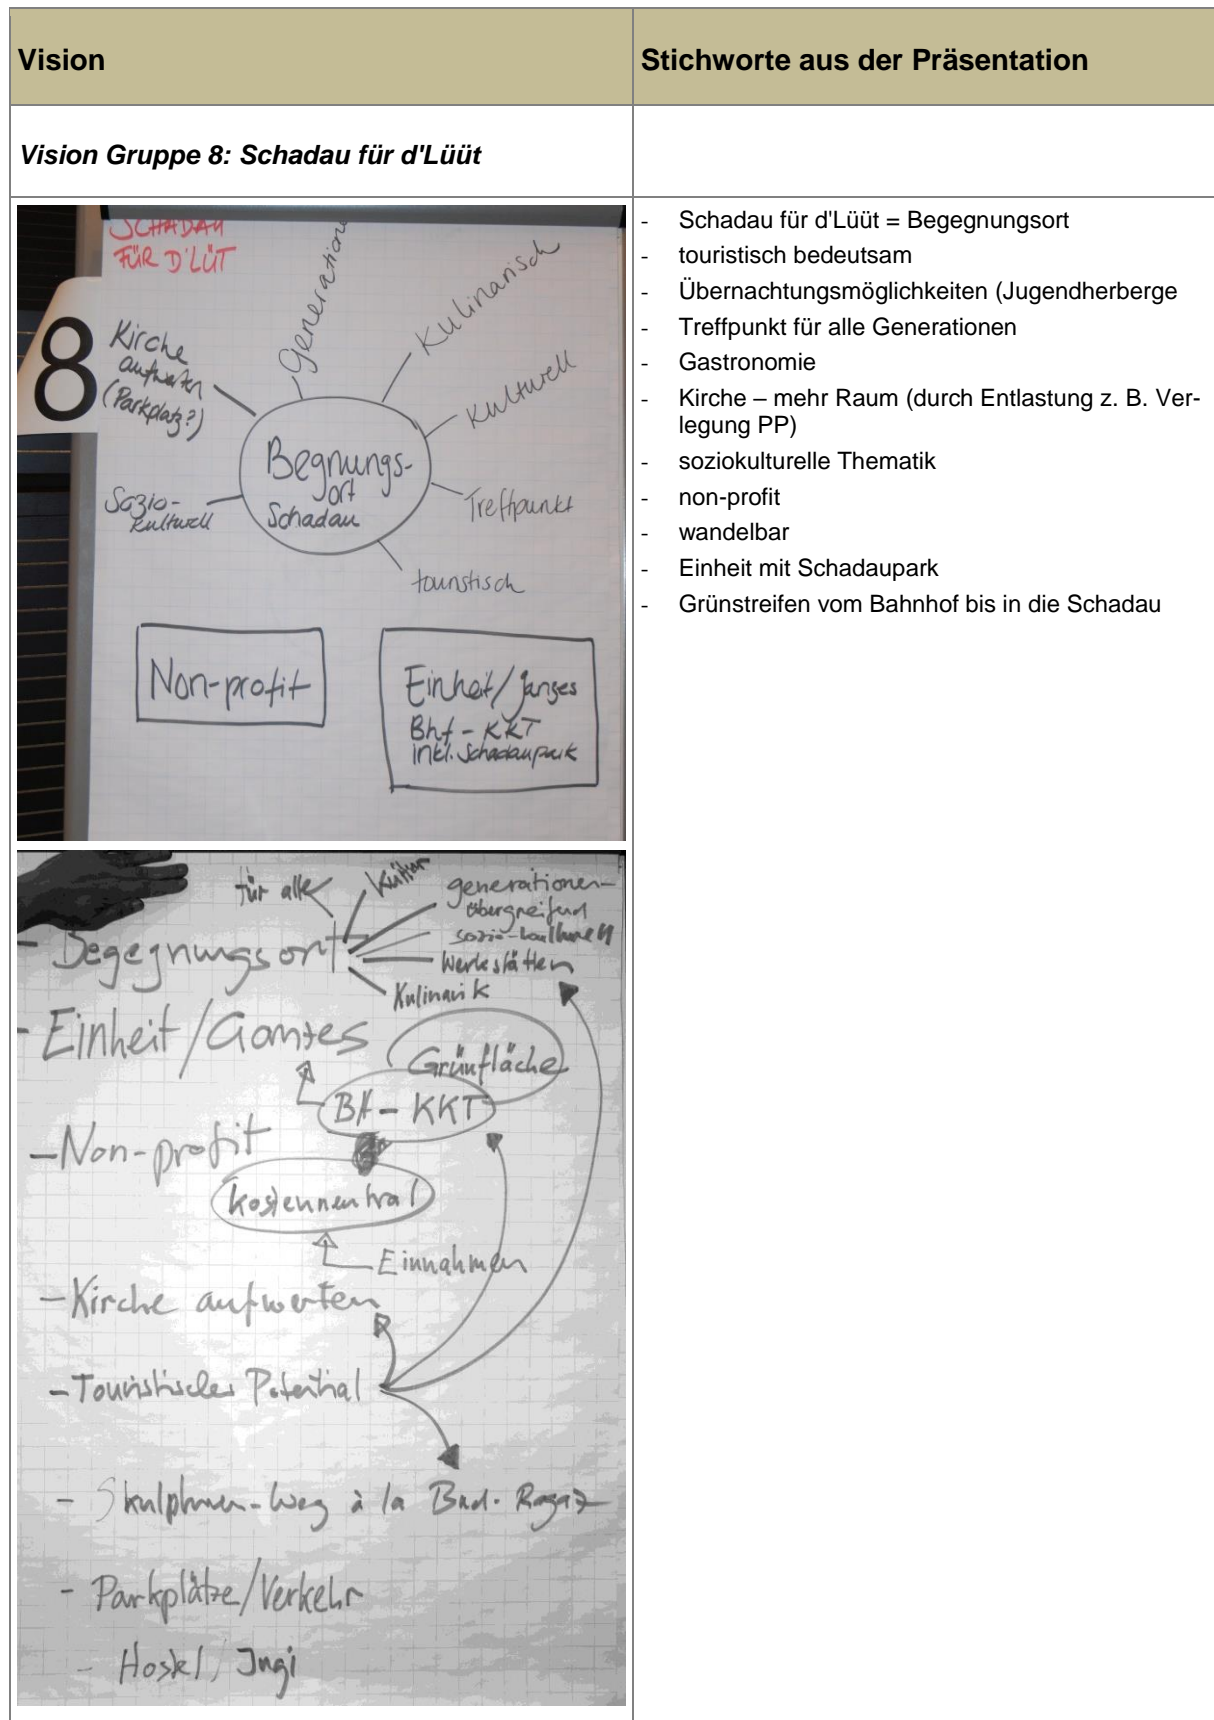 Vision
Stichworte aus der Präsentation
Vision Gruppe 8: Schadau für d'Lüüt
SCHADAU
FÜR D'LÜT
8
Kirche
aufwerten
(Parkplatz?)
Generation
Kulinarisch
Kulturell
Treffpunkt
touristisch
Sozio-
kulturell
Begnungs-
ort
Schadau
Non-profit
Einheit/ganzes
Bhf - KKT
inkl. Schadaupark
- Schadau für d'Lüüt = Begegnungsort
- touristisch bedeutsam
- Übernachtungsmöglichkeiten (Jugendherberge
- Treffpunkt für alle Generationen
- Gastronomie
- Kirche – mehr Raum (durch Entlastung z. B. Ver-
legung PP)
- soziokulturelle Thematik
- non-profit
- wandelbar
- Einheit mit Schadaupark
- Grünstreifen vom Bahnhof bis in die Schadau
für alle
Kultur
generationen-
übergreifend
sozio-kulturell
Werkstätten
Kulinarik
- Begegnungsort
- Einheit/Ganzes
Grünfläche
BH - KKT
- Non-profit
Kostenneutral
Einnahmen
- Kirche aufwerten
- Touristisches Potential
- Skulpturen-Weg à la Bad-Ragaz
- Parkplätze/Verkehr
- Hostel/Jugi